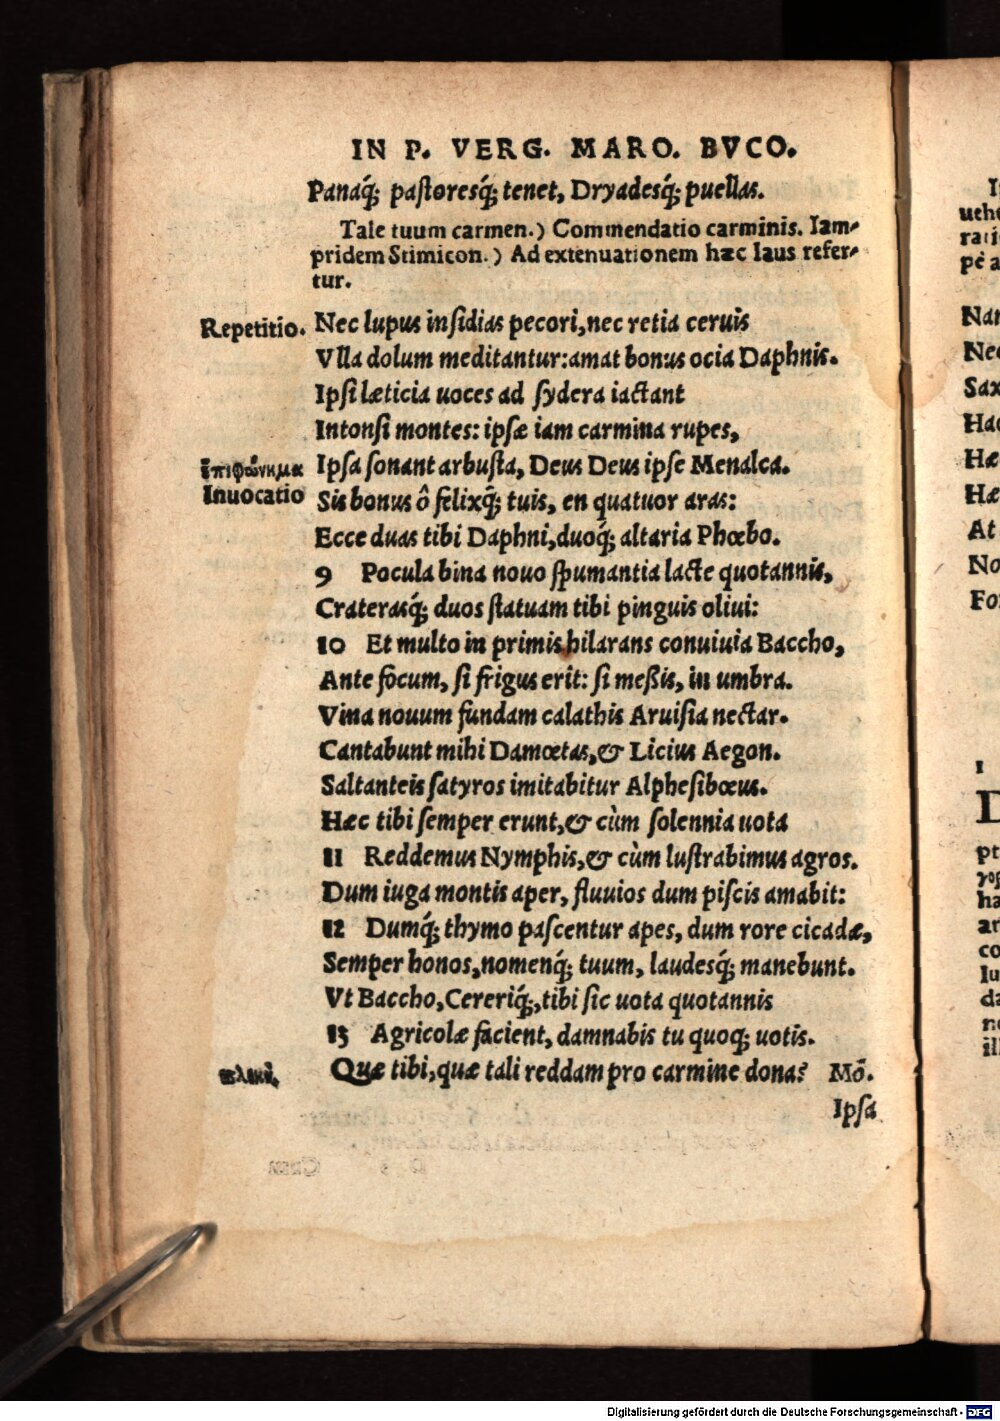 IN P. VERG. MARO. BVCO.
Panaq́; pastoresq́; tenet, Dryadesq́; puellas.
Tale tuum carmen.) Commendatio carminis. Iam-
pridem Stimicon.) Ad extenuationem hæc laus refer-
tur.
Repetitio. Nec lupus insidias pecori, nec retia ceruis
Vlla dolum meditantur: amat bonus ocia Daphnis.
Ipsi læticia uoces ad sydera iactant
Intonsi montes: ipsæ iam carmina rupes,
ἐπιφώνημα Ipsa sonant arbusta, Deus Deus ipse Menalca.
Inuocatio Sis bonus ô felixq́; tuis, en quatuor aras:
Ecce duas tibi Daphni, duoq́; altaria Phœbo.
9 Pocula bina nouo spumantia lacte quotannis,
Craterasq́; duos statuam tibi pinguis oliui:
10 Et multo in primis hilarans conuiuia Baccho,
Ante focum, si frigus erit: si meßis, in umbra.
Vina nouum fundam calathis Aruisia nectar.
Cantabunt mihi Damœtas, & Licius Aegon.
Saltanteis satyros imitabitur Alphesibœus.
Hæc tibi semper erunt, & cùm solennia uota
11 Reddemus Nymphis, & cùm lustrabimus agros.
Dum iuga montis aper, fluuios dum piscis amabit:
12 Dumq́; thymo pascentur apes, dum rore cicadæ,
Semper honos, nomenq́; tuum, laudesq́; manebunt.
Vt Baccho, Cereriq́;, tibi sic uota quotannis
13 Agricolæ facient, damnabis tu quoq; uotis.
Quæ tibi, quæ tali reddam pro carmine dona? Mō.
Ipsa
In
Nam
Nec
Sax
Hæ
At
No
For
1
D
Digitalisierung gefördert durch die Deutsche Forschungsgemeinschaft - DFG